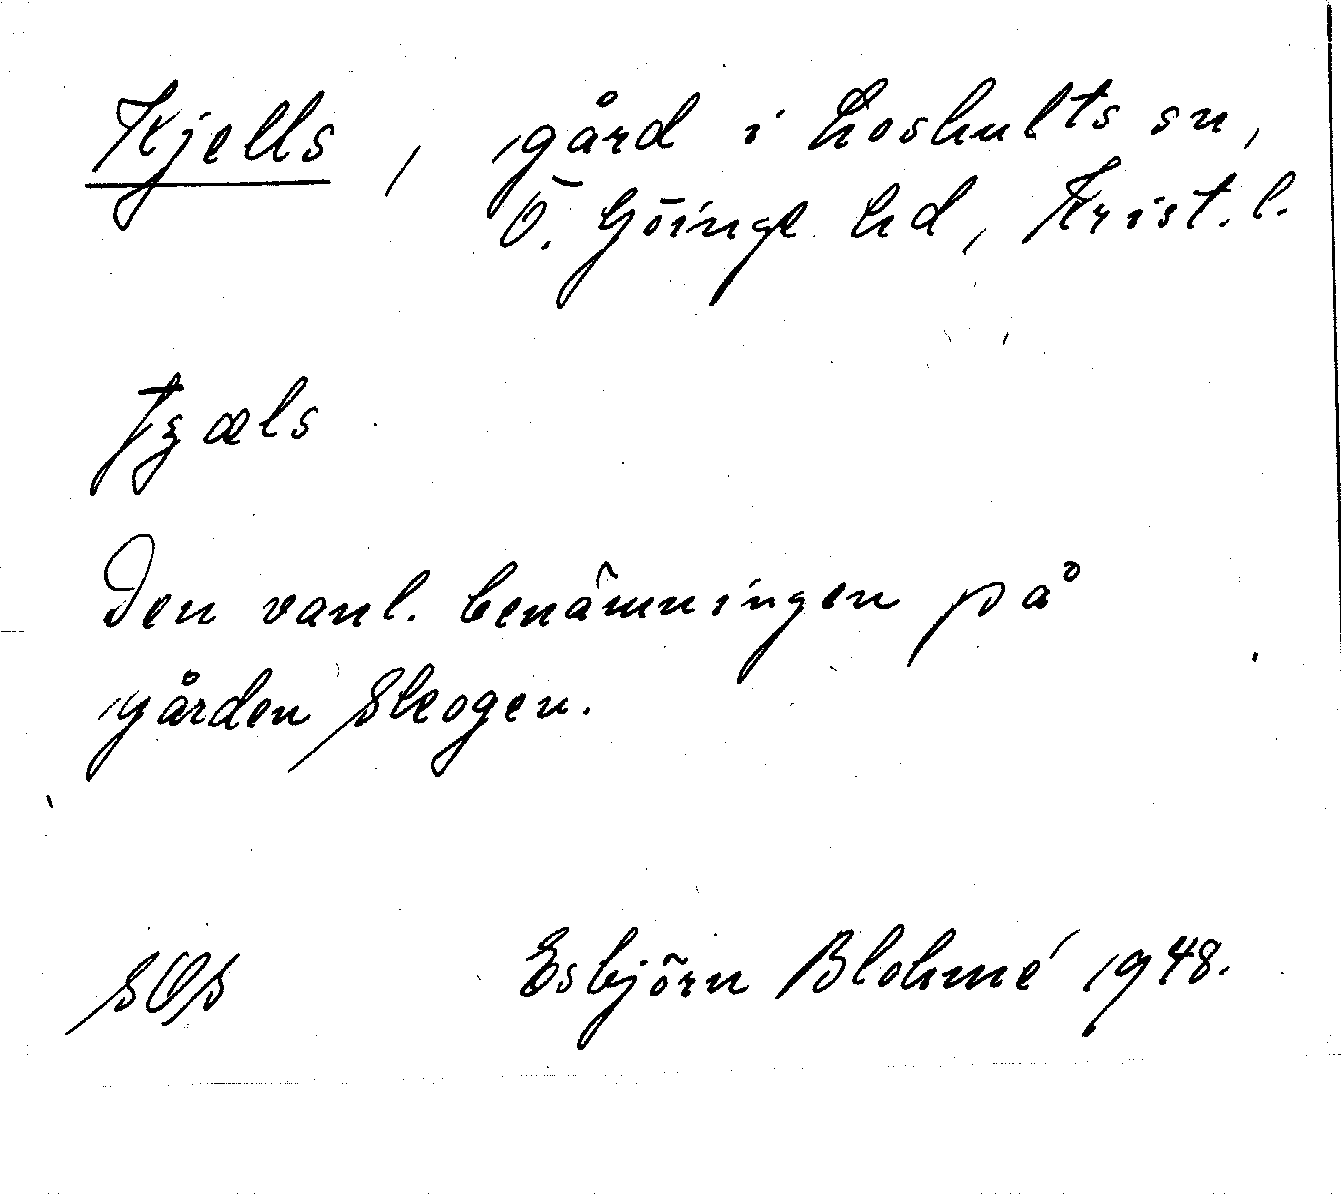 Kjells, gård i Loshults sn,
Ö. Göinge hd, Krist. l.
tʒæls
Den vanl. benämningen på
gården Skogen.
SOS Esbjörn Blohmé 1948.